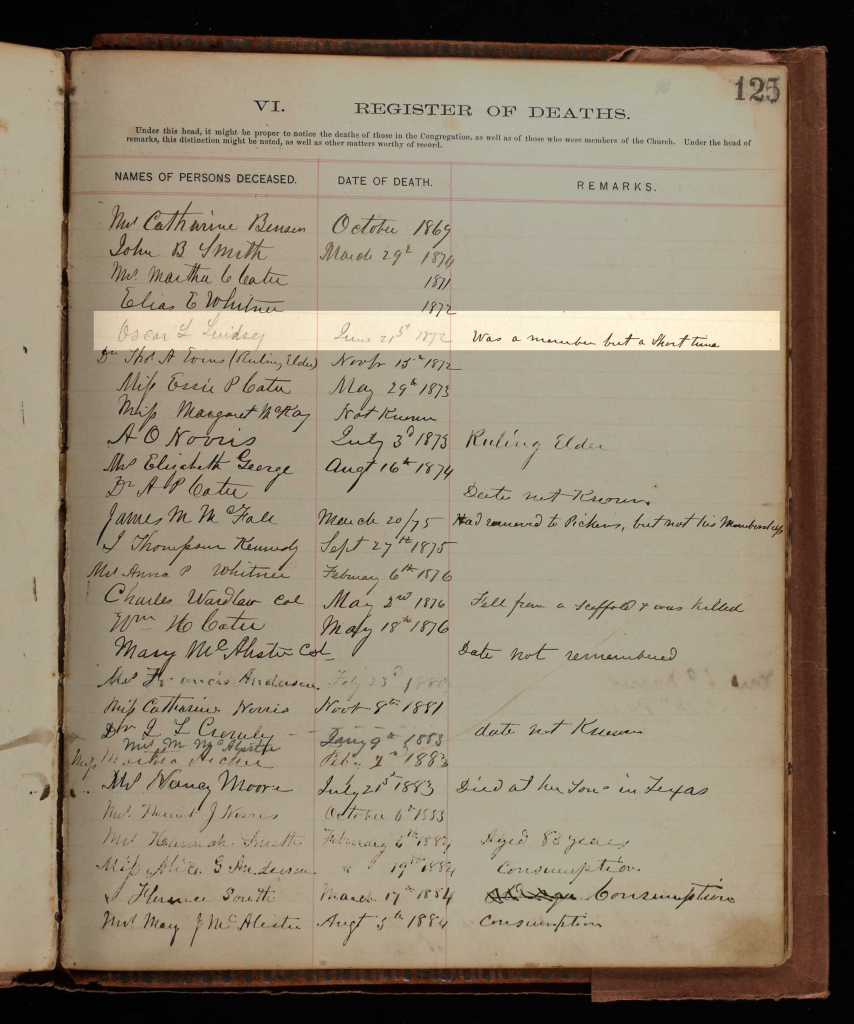 125
VI. REGISTER OF DEATHS.
Under this head, it might be proper to notice the deaths of those in the Congregation, as well as of those who were members of the Church. Under the head of
remarks, this distinction might be noted, as well as other matters worthy of record.
NAMES OF PERSONS DECEASED. DATE OF DEATH. REMARKS.
Mrs Catharine Benson October 1869
John B Smith March 29th 1870
Mrs Martha C Cater 1871
Elias E Whitner 1872
Oscar L Lindsey June 21st 1872 Was a member but a Short time
Dr Thos A Evins (Ruling Elder) Novbr 15th 1872
Miss Essie P Cater May 29th 1873
Miss Margaret McKay Not Known
A O Norris July 3d 1873 Ruling Elder
Mrs Elizabeth George Augt 16th 1874
Dr A P Cater Date not Known
James M McFall March 20/75 Had removed to Pickens, but not his Membership
J Thompson Kennedy Sept 27th 1875
Mrs Anna P Whitner February 6th 1876
Charles Wardlaw Col May 2nd 1876 Fell from a scaffold & was killed
Wm H Cater May 18th 1876
Mary McAlister Col Date not remembered
Mrs Frances Anderson Feby 23d
Miss Catharine Norris Novr 8th 1881
Dr date not Known
Mrs M McAlister Jany 9th 1883
Miss Martha Feby 2nd 1883
Mrs Nancy Moore July 21st 1883 Died at her Sons in Texas
Mrs J Norris October 6th 1883
Mrs Hannah Smith February 6th 1884 Aged 83 years
Miss Alice G Anderson " 19th 1884 Consumption
Florence South March 17th 1884 Consumption
Mrs Mary J McAlister Augt 5th 1884 Consumption